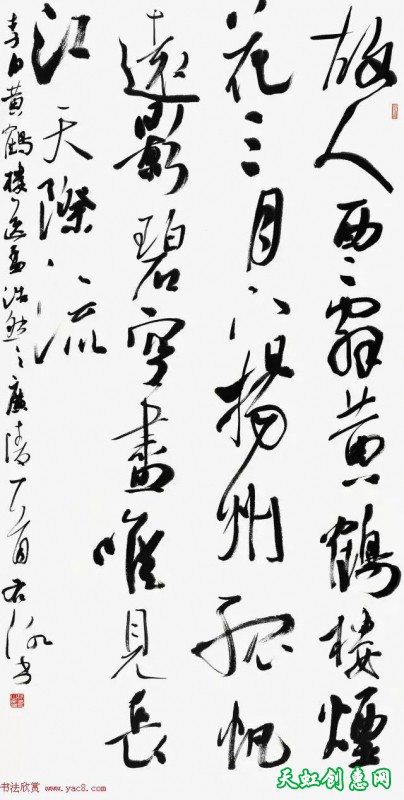 故人西辭黄鶴樓煙
花三月下揚州孤帆
遠影碧空盡唯見長
江天際流
李白黄鶴樓送孟浩然之廣陵一首
书法欣赏 www.yac8.com
天虹创惠网